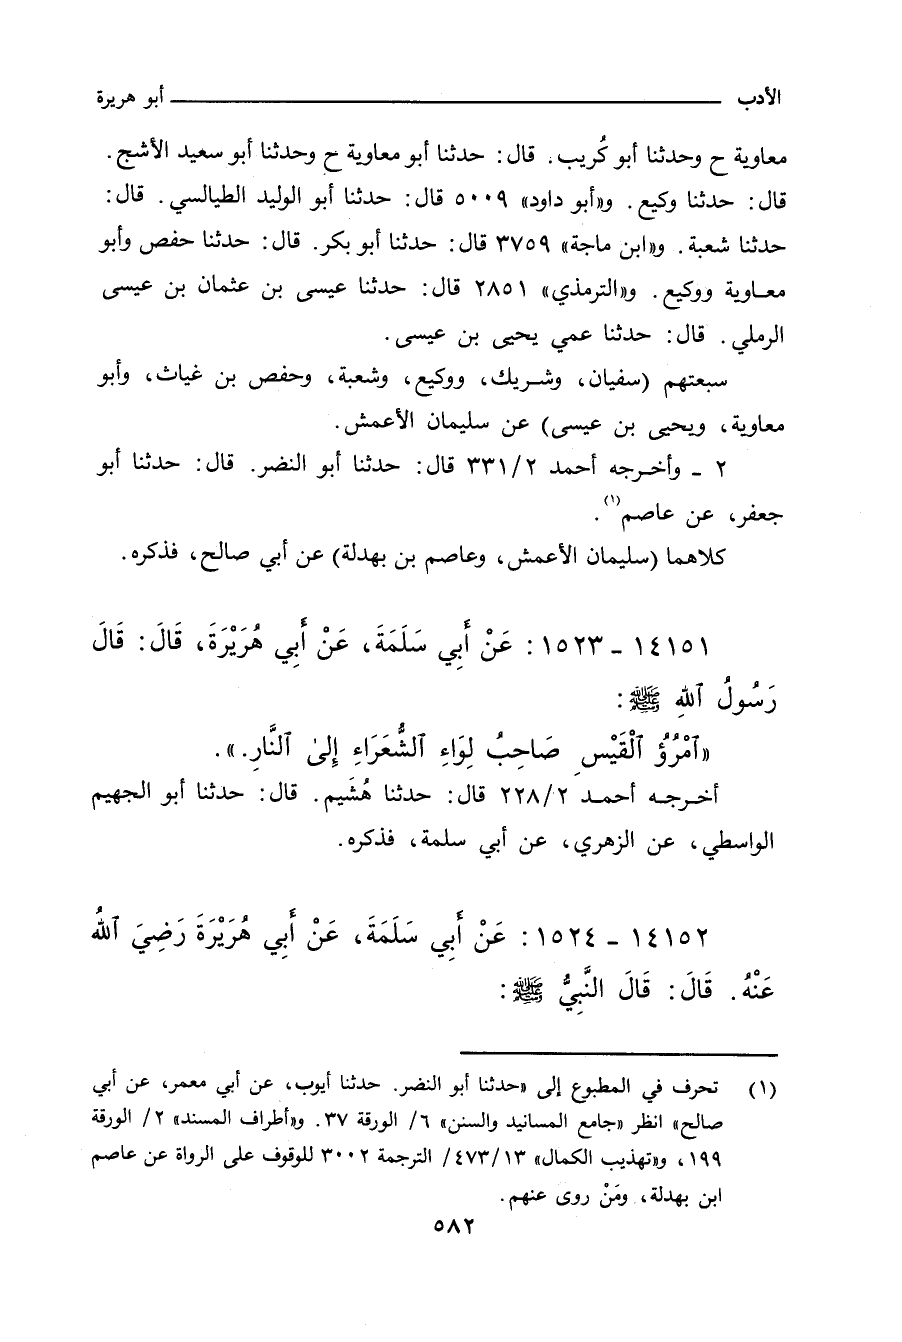 الأدب ــــــــــــــــــــ أبو هريرة
معاوية ح وحدثنا أبو كُريب. قال: حدثنا أبو معاوية ح وحدثنا أبو سعيد الأشج.
قال: حدثنا وكيع. و«أبو داود» ٥٠٠٩ قال: حدثنا أبو الوليد الطيالسي. قال:
حدثنا شعبة. و«ابن ماجة» ٣٧٥٩ قال: حدثنا أبو بكر. قال: حدثنا حفص وأبو
معـاوية ووكيع. و«الترمذي» ٢٨٥١ قال: حدثنا عيسى بن عثمان بن عيسى
الرملي. قال: حدثنا عمي يحيى بن عيسى.
سبعتهم (سفيان، وشـريك، ووكيع، وشعبة، وحفص بن غياث، وأبو
معاوية، ويحيى بن عيسى) عن سليمان الأعمش.
٢ ـ وأخـرجه أحمد ٣٣١/٢ قال: حدثنا أبو النضر. قال: حدثنا أبو
جعفر، عن عاصم(١).
كلاهما (سليمان الأعمش، وعاصم بن بهدلة) عن أبي صالح، فذكره.
١٤١٥١ ـ ١٥٢٣: عَنْ أَبِي سَلَمَةَ، عَنْ أَبِي هُرَيْرَةَ، قَالَ: قَالَ
رَسُولُ ٱللهِ ﷺ:
«ٱمْرُؤُ ٱلْقَيْسِ صَاحِبُ لِوَاءِ ٱلشُّعَرَاءِ إِلىٰ ٱلنَّارِ.».
أخـرجـه أحمـد ٢٢٨/٢ قال: حدثنا هُشَيم. قال: حدثنا أبو الجهيم
الواسطي، عن الزهري، عن أبي سلمة، فذكره.
١٤١٥٢ ـ ١٥٢٤: عَنْ أَبِي سَلَمَةَ، عَنْ أَبِي هُرَيْرَةَ رَضِيَ ٱللهُ
عَنْهُ. قَالَ: قَالَ النَّبِيُّ ﷺ:
(١) تحرف في المطبوع إلى «حدثنا أبو النضر. حدثنا أيوب، عن أبي معمر، عن أبي
صالح» انظر «جامع المسانيد والسنن» ٦/ الورقة ٣٧. و«أطراف المسند» ٢/ الورقة
١٩٩، و«تهذيب الكمال» ٤٧٣/١٣/ الترجمة ٣٠٠٢ للوقوف على الرواة عن عاصم
ابن بهدلة، ومَنْ روى عنهم.
٥٨٢